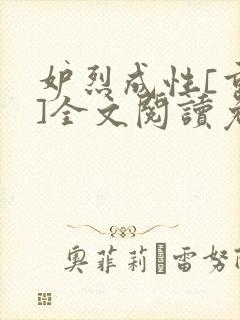 妒烈成性[
]全文閱讀
奧菲莉 雷努